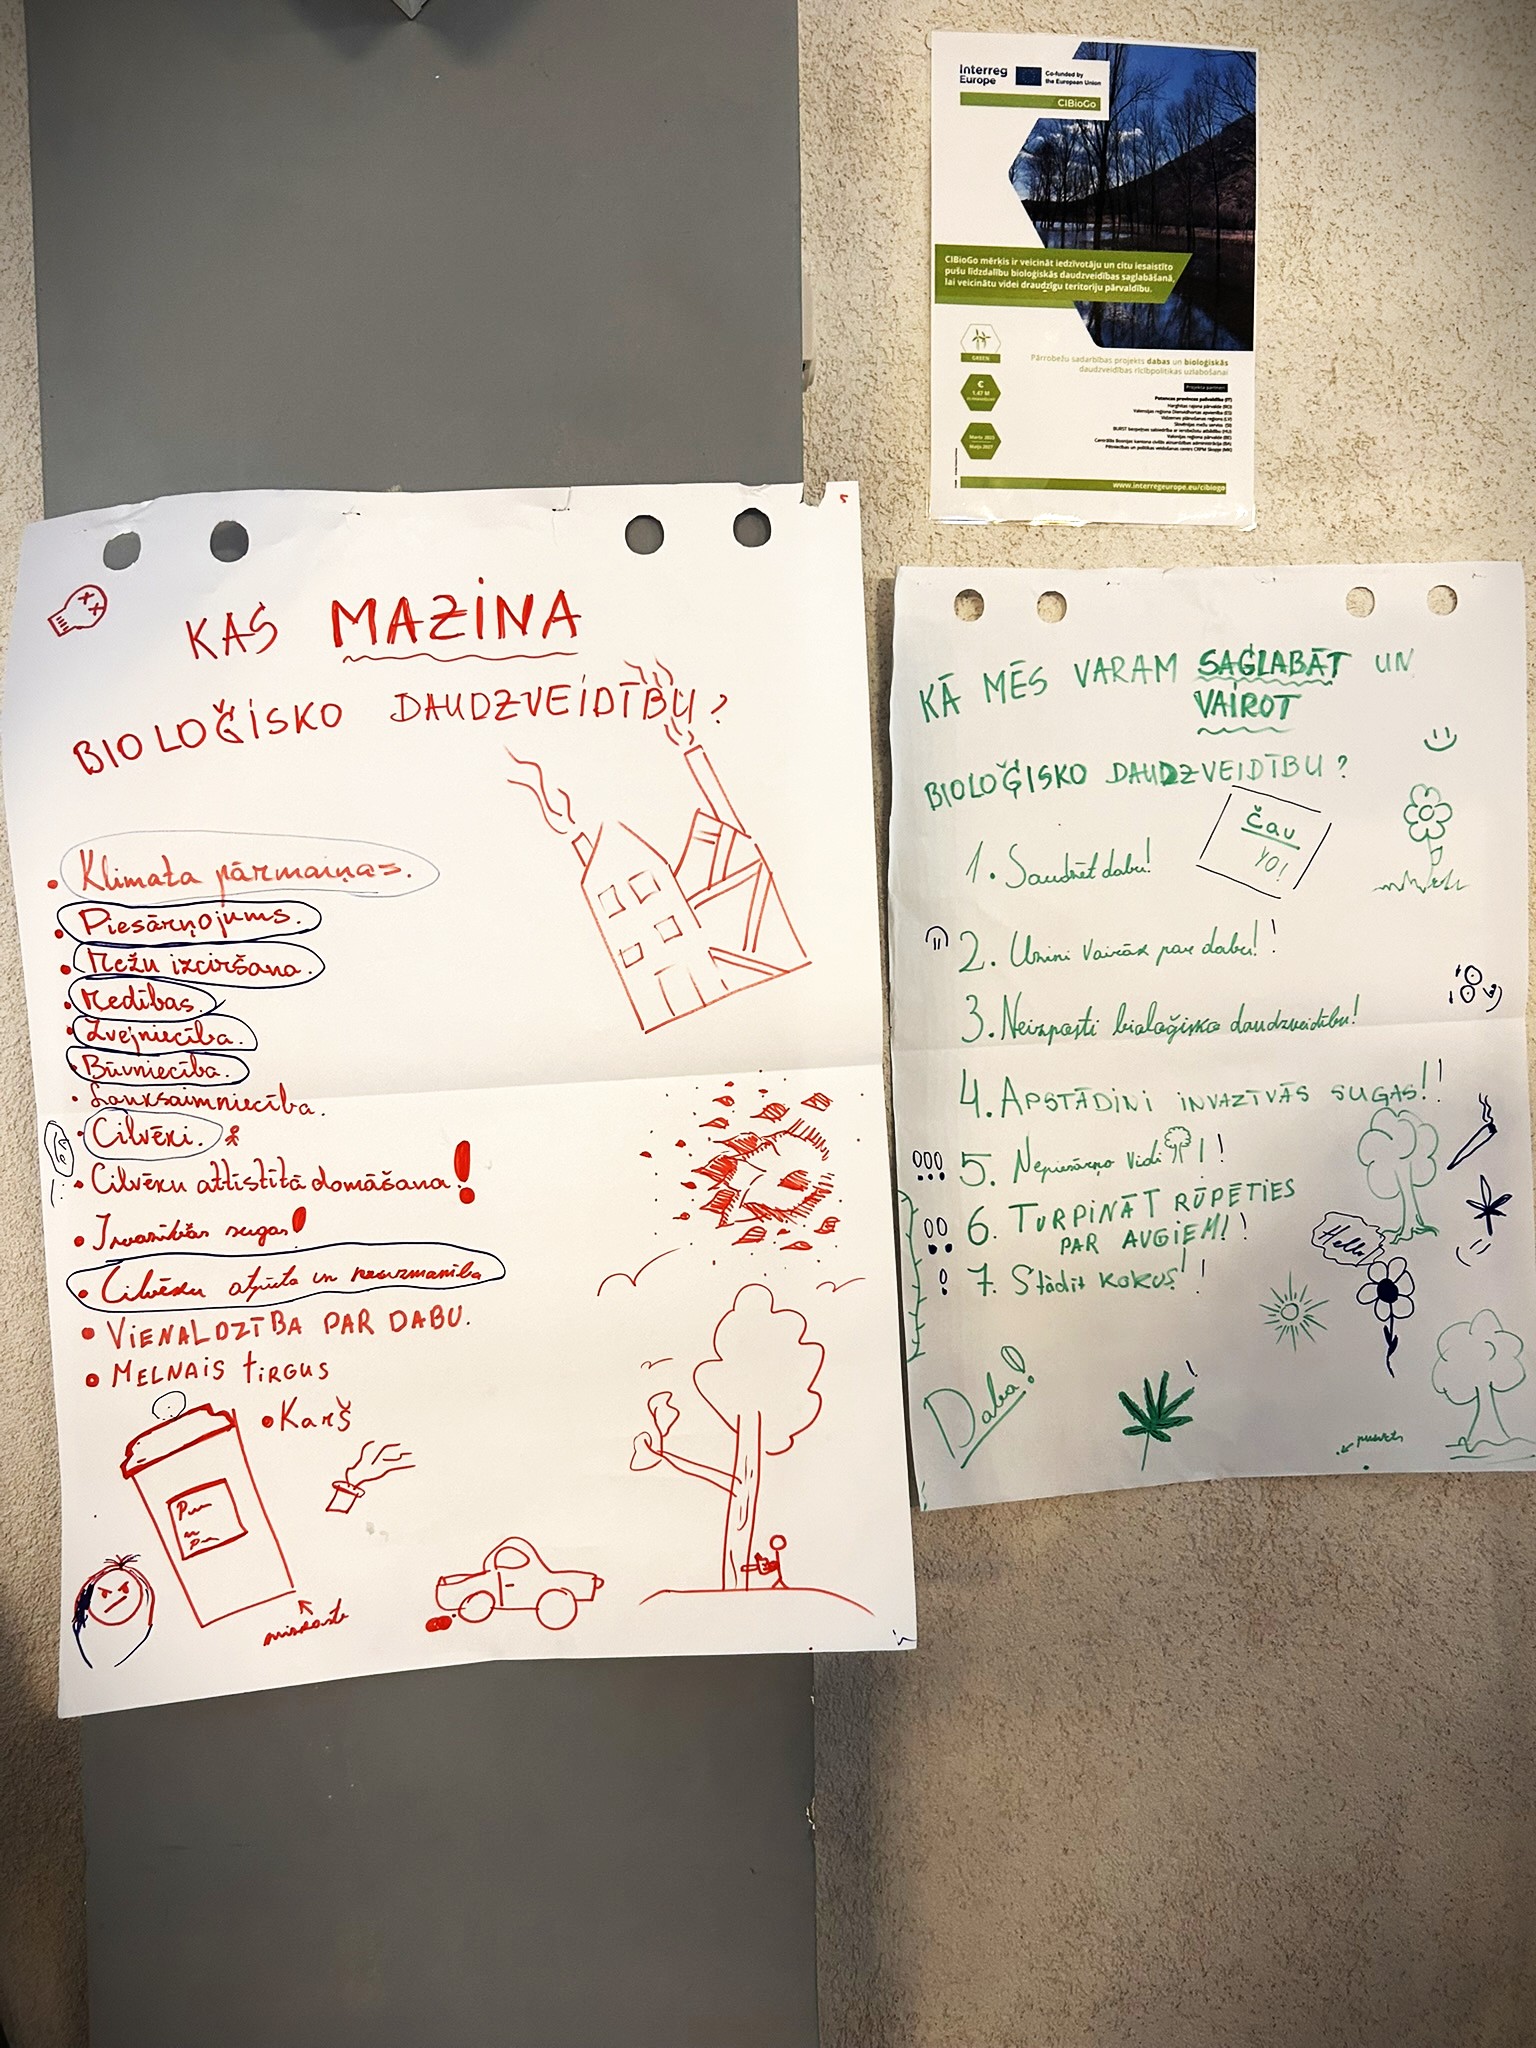 Interreg
Europe
Co-funded by
the European Union
CIBioGo
CIBioGo mērķis ir veicināt iedzīvotāju un citu iesaistīto
pušu līdzdalību bioloģiskās daudzveidības saglabāšanā,
lai veicinātu videi draudzīgu teritoriju pārvaldību.
GREEN
Pārrobežu sadarbības projekts dabas un bioloģiskās
daudzveidības rīcībpolitikas uzlabošanai
€
1.47 M
Projekta partneri
www.interregeurope.eu/cibiogo
KAS MAZINA
BIOLOĢISKO DAUDZVEIDĪBU?
• Klimata pārmaiņas.
• Piesārņojums.
• Mežu izciršana.
• Medības.
• Zvejniecība.
• Būvniecība.
• Lauksaimniecība.
• Cilvēki.
• Cilvēku attīstītā domāšana!
• Invazīvās sugas!
• Cilvēku atpūta un neuzmanība
• VIENALDZĪBA PAR DABU.
• MELNAIS TIRGUS
• Karš
KĀ MĒS VARAM SAGLABĀT UN
VAIROT
BIOLOĢISKO DAUDZVEIDĪBU?
Čau
YO!
1. Saudzēt dabu!
2. Uzzini vairāk par dabu!!
3. Neizposti bioloģisko daudzveidību!
4. APSTĀDINI INVAZĪVĀS SUGAS!!
5. Nepiesārņo vidi!!
6. TURPINĀT RŪPĒTIES
PAR AUGIEM!!
7. Stādīt kokus!!
Hello
Daba!